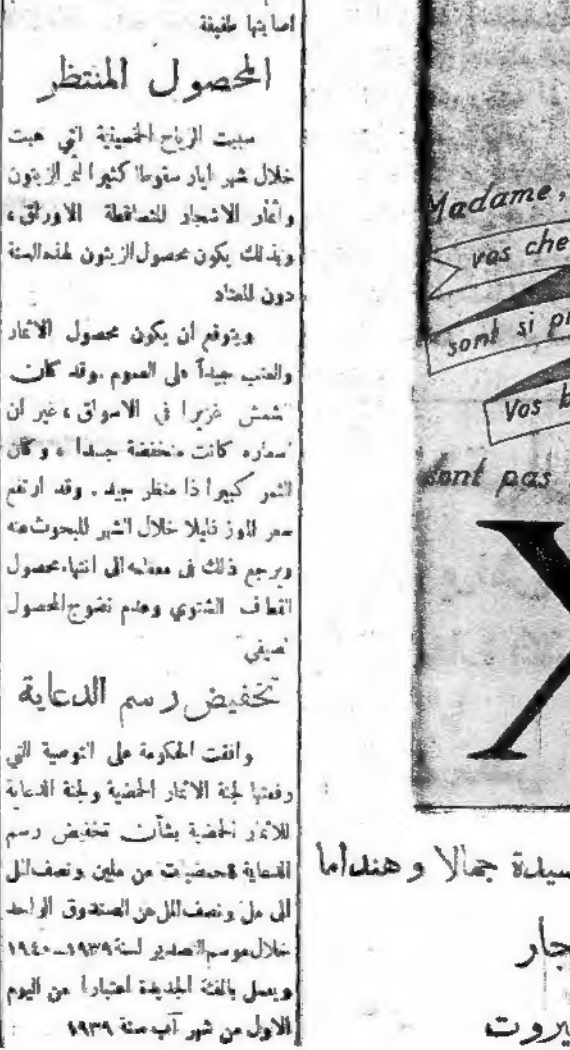 اصابتها طفيفة
المحصول المنتظر
سببت الرياح الخمسينية التي هبت
خلال شهر ايار سقوطا كثيرا لثمر الزيتون
وأثمار الاشجار المتساقطة الاوراق ،
وبذلك يكون محصول الزيتون لهذه السنة
دون المعتاد
ويتوقع ان يكون محصول الاثمار
والعنب جيداً على العموم .وقد كان
المشمش غزيرا في الاسواق ، غير ان
اسعاره كانت منخفضة جدا ، وكان
الثمر كبيرا ذا منظر جيد . وقد ارتفع
سعر الموز قليلا خلال الشهر المبحوث عنه
ويرجع ذلك في معظمه الى انتهاء محصول
القطاف الشتوي وعدم نضوج المحصول
الصيفي
تخفيض رسم الدعاية
وافقت الحكومة على التوصية التي
رفعتها لجنة الاثمار الحمضية ولجنة الدعاية
للاثمار الحمضية بشأن تخفيض رسم
الدعاية للحمضيات من ملين ونصف المل
الى مل ونصف المل عن الصندوق الواحد
خلال موسم التصدير لسنة ١٩٣٩—١٩٤٠
ويعمل بالفئة الجديدة اعتبارا من اليوم
الاول من شهر آب سنة ١٩٣٩
Madame,
vos che
sont si pr
Vos b
sont pas
X
سيدة جمالا وهنداما
جار
يروت